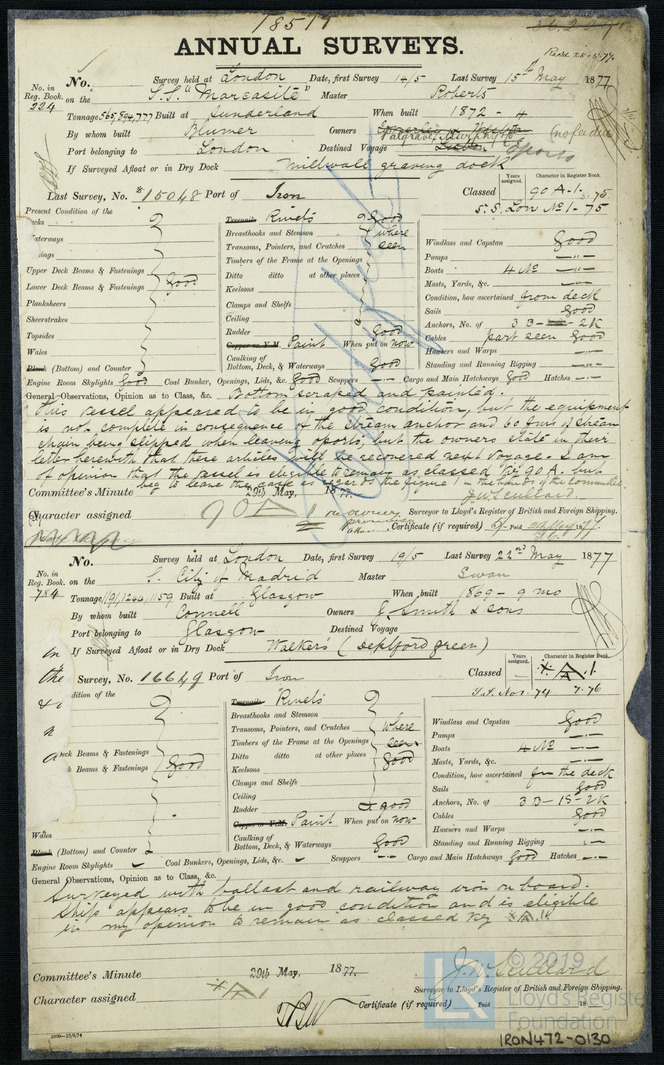 18519
ANNUAL SURVEYS.
Recd 25-5-77.
No. Survey held at London Date, first Survey 14/5 Last Survey 15th May 1877
No. in Reg. Book. 224 on the S.S. "Marcasite" Master Roberts
Tonnage 565,894,777 Built at Sunderland When built 1872 - 4
By whom built Blumer Owners Palgrave Murphy & Co (no fee due
Port belonging to London Destined Voyage Lisbon Oporto
If Surveyed Afloat or in Dry Dock Millwall graving dock
Last Survey, No. 15048 Port of Iron Classed 90 A.1. 75
Years assigned. Character in Register Book.
S.S. Lon No1-75
Present Condition of the
Decks
Waterways
Upper Deck Beams & Fastenings
Lower Deck Beams & Fastenings Good
Planksheers
Sheerstrakes
Topsides
Wales
Plank (Bottom) and Counter
Treenails Rivets Good
Breasthooks and Stemson where
Transoms, Pointers, and Crutches seen
Timbers of the Frame at the Openings
Ditto ditto at other places
Keelsons
Clamps and Shelfs
Ceiling
Rudder Good
Copper or Y.M. Paint When put on now
Caulking of Bottom, Deck, & Waterways Good
Windlass and Capstan Good
Pumps -"-
Boats 4 No -"-
Masts, Yards, &c. -"-
Condition, how ascertained from deck
Sails Good
Anchors, No. of 3 B- -2K
Cables part seen Good
Hawsers and Warps -"-
Standing and Running Rigging -"-
Engine Room Skylights Good Coal Bunker, Openings, Lids, &c. Good Scuppers -"- Cargo and Main Hatchways Good Hatches -"-
General Observations, Opinion as to Class, &c. Bottom scraped and painted.
This vessel appeared to be in good condition, but the equipment
is not complete in consequence of the stream anchor and 60 fms of stream
chain being slipped when leaving Oporto, but the owners state in their
letter herewith that these articles will be recovered next voyage. I am
of opinion that the vessel is eligible to remain as classed Viz 90 A. but
beg to leave the case as regards the figure 1 in the hands of the Committee.
Committee's Minute 29th May, 1877.
Character assigned 90 A
Surveyor to Lloyd's Register of British and Foreign Shipping.
Certificate (if required) Paid
No. Survey held at London Date, first Survey 19/5 Last Survey 22nd May 1877
No. in Reg. Book. 784 on the S. City of Madrid Master Swan
Tonnage 1191,1200,1159 Built at Glasgow When built 1869 - 9 mo
By whom built Connell Owners G. Smith & Sons
Port belonging to Glasgow Destined Voyage
If Surveyed Afloat or in Dry Dock Walkers (Deptford green)
Survey, No. 16649 Port of Iron Classed A.1
Years assigned. Character in Register Book.
7.76
Deck Beams & Fastenings
Beams & Fastenings Good
Wales
Plank (Bottom) and Counter
Treenails Rivets
Breasthooks and Stemson
Transoms, Pointers, and Crutches where
Timbers of the Frame at the Openings seen
Ditto ditto at other places Good
Keelsons
Clamps and Shelfs
Ceiling
Rudder Good
Copper or Y.M. Paint When put on now
Caulking of Bottom, Deck, & Waterways Good
Windlass and Capstan Good
Pumps -"-
Boats 4 No -"-
Masts, Yards, &c. -"-
Condition, how ascertained from the deck
Sails Good
Anchors, No. of 3 B-1S-2K
Cables Good
Hawsers and Warps -"-
Standing and Running Rigging -"-
Engine Room Skylights Coal Bunkers, Openings, Lids, &c. Scuppers -"- Cargo and Main Hatchways Good Hatches -"-
General Observations, Opinion as to Class, &c.
Surveyed with ballast and railway iron on board.
Ship appears to be in good condition and is eligible
in my opinion to remain as classed Viz A.1
Committee's Minute 29th May, 1877.
Character assigned A 1
Surveyor to Lloyd's Register of British and Foreign Shipping.
Certificate (if required) Paid 18
© 2019
Lloyd's Register
Foundation
IRON472-0130